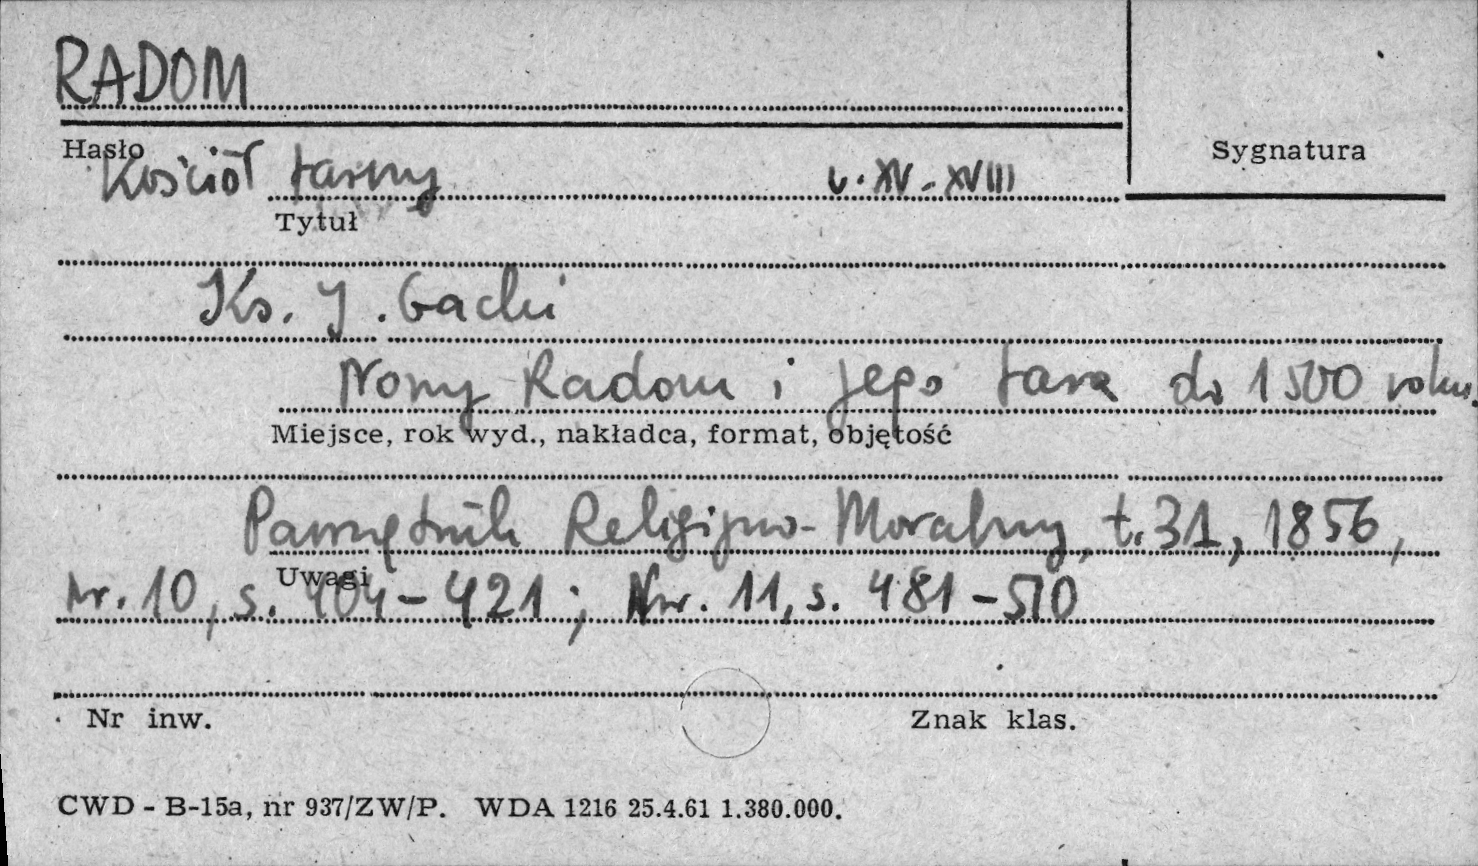 RADOM
Hasło
Sygnatura
Kościół farny w. XV-XVIII
Tytuł
Ks. J. Gacki
Nowy Radom i jego fara do 1500 roku.
Miejsce, rok wyd., nakładca, format, objętość
Pamiętnik Religijno-Moralny, t. 31, 1856,
Uwagi
nr. 10, s. 404-421; Nr. 11, s. 481-510
Nr inw.
Znak klas.
CWD - B-15a, nr 937/ZW/P. WDA 1216 25.4.61 1.380.000.